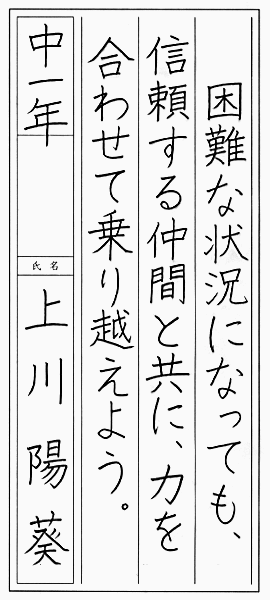 困難な状況になっても、
信頼する仲間と共に、力を
合わせて乗り越えよう。
中一年
氏名
上川陽葵